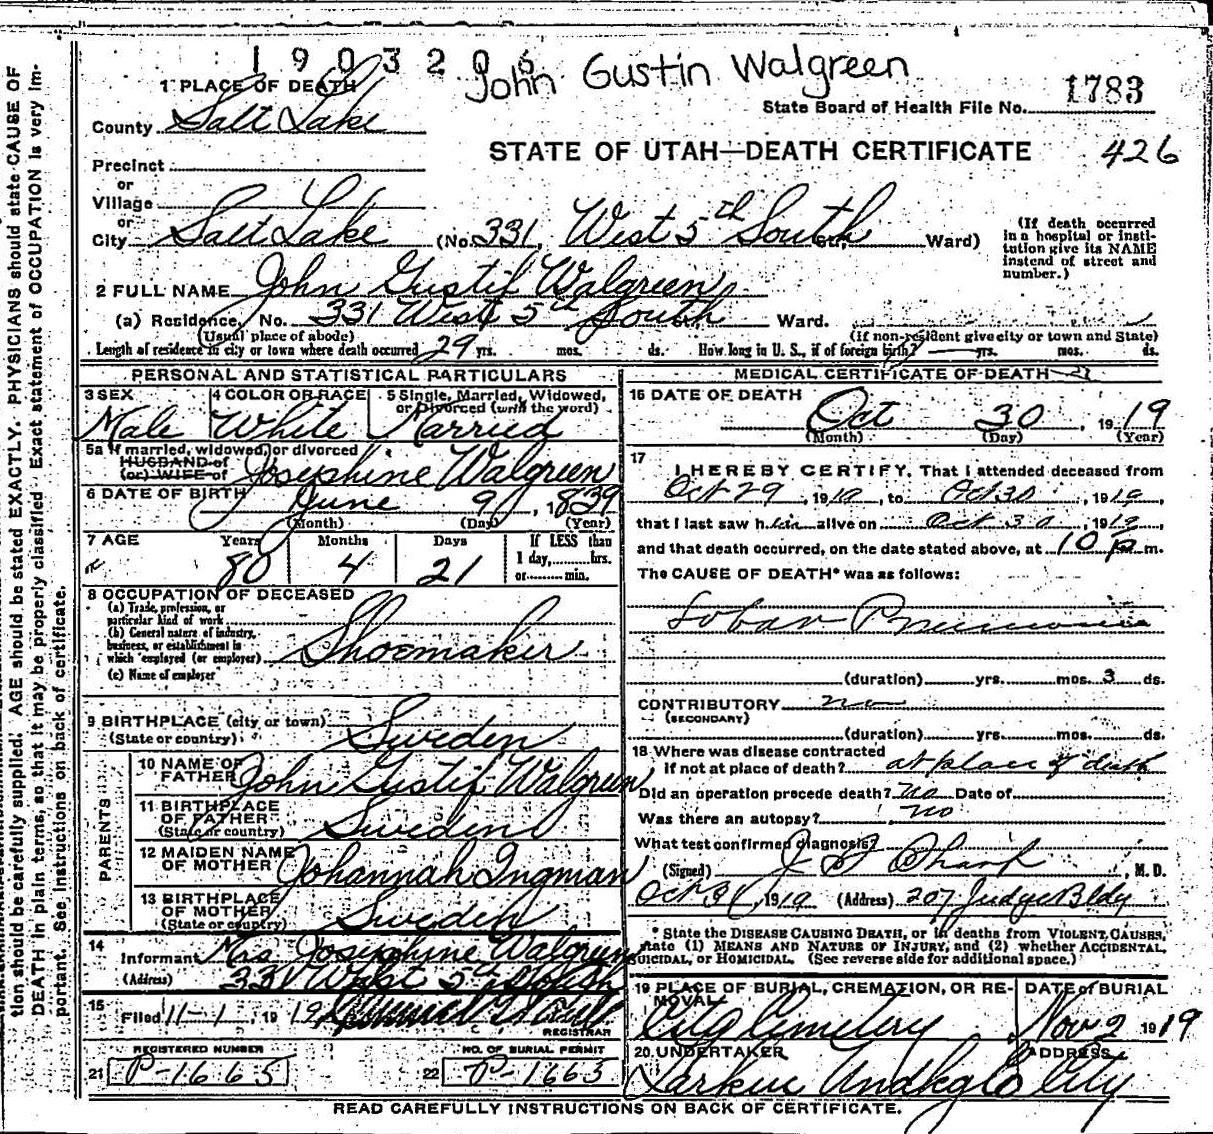 1903206
John Gustin Walgreen
1 PLACE OF DEATH
State Board of Health File No. 1783
County Salt Lake
STATE OF UTAH—DEATH CERTIFICATE 426
Precinct
or
Village
or
City Salt Lake (No. 331, West 5th South St., Ward)
(If death occurred in a hospital or insti-
tution give its NAME
instead of street and
number.)
2 FULL NAME John Gustif Walgreen
(a) Residence, No. 331 West 5th South St., Ward.
(Usual place of abode) (If non-resident give city or town and State)
Length of residence in city or town where death occurred 29 yrs. mos. ds. How long in U. S., if of foreign birth? yrs. mos. ds.
PERSONAL AND STATISTICAL PARTICULARS
3 SEX 4 COLOR OR RACE 5 Single, Married, Widowed,
or Divorced (with the word)
Male White Married
5a If married, widowed, or divorced
HUSBAND of
(or) WIFE of Josephine Walgreen
6 DATE OF BIRTH June 9, 1839
(Month) (Day) (Year)
7 AGE Years Months Days If LESS than
1 day, hrs.
or min.
80 4 21
8 OCCUPATION OF DECEASED
(a) Trade, profession, or
particular kind of work
(b) General nature of industry,
business, or establishment in
which employed (or employer) Shoemaker
(c) Name of employer
9 BIRTHPLACE (city or town)
(State or country) Sweden
PARENTS
10 NAME OF
FATHER John Gustif Walgreen
11 BIRTHPLACE
OF FATHER
(State or country) Sweden
12 MAIDEN NAME
OF MOTHER Johannah Ingman
13 BIRTHPLACE
OF MOTHER
(State or country) Sweden
14
Informant Mrs Josephine Walgreen
(Address) 331 West 5th South
15
Filed 11-1, 1919
REGISTRAR
REGISTERED NUMBER NO. OF BURIAL PERMIT
21 P-1665 22 P-1665
MEDICAL CERTIFICATE OF DEATH
16 DATE OF DEATH
Oct 30, 1919
(Month) (Day) (Year)
17
I HEREBY CERTIFY, That I attended deceased from
Oct 29, 1919, to Oct 30, 1919,
that I last saw him alive on Oct 30, 1919,
and that death occurred, on the date stated above, at 10 p m.
The CAUSE OF DEATH* was as follows:
Lobar Pneumonia
(duration) yrs. mos. 3 ds.
CONTRIBUTORY no
(SECONDARY)
(duration) yrs. mos. ds.
18 Where was disease contracted
if not at place of death? at place of death
Did an operation precede death? No Date of
Was there an autopsy? no
What test confirmed diagnosis?
(Signed) J S Sharp, M. D.
Oct 31, 1919 (Address) 207 Judge Bldg
* State the DISEASE CAUSING DEATH, or in deaths from VIOLENT CAUSES,
state (1) MEANS AND NATURE OF INJURY, and (2) whether ACCIDENTAL,
SUICIDAL, or HOMICIDAL. (See reverse side for additional space.)
19 PLACE OF BURIAL, CREMATION, OR RE-
MOVAL
DATE of BURIAL
City Cemetery Nov 2 1919
20 UNDERTAKER ADDRESS
City
READ CAREFULLY INSTRUCTIONS ON BACK OF CERTIFICATE.
tion should be carefully supplied. AGE should be stated EXACTLY. PHYSICIANS should state CAUSE OF
DEATH in plain terms, so that it may be properly classified. Exact statement of OCCUPATION is very im-
portant. See instructions on back of certificate.